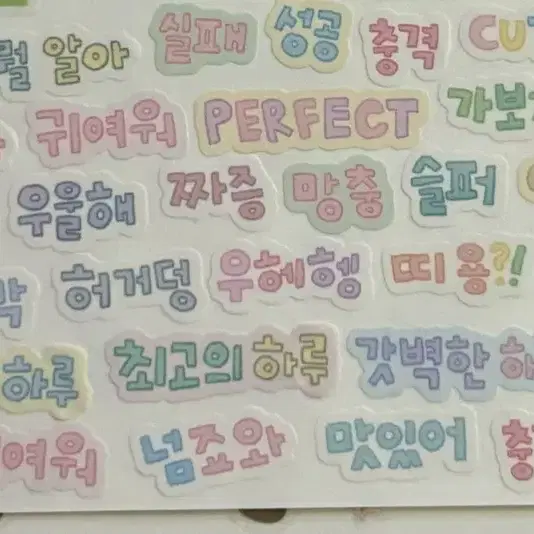 뭘 알아 실패 성공 충격 CU
귀여워 PERFECT 가보
우울해 짜증 망충 슬퍼
박 허거덩 우헤헹 띠용?!
하루 최고의 하루 갓벽한 해
여워 넘죠와 맛있어 충